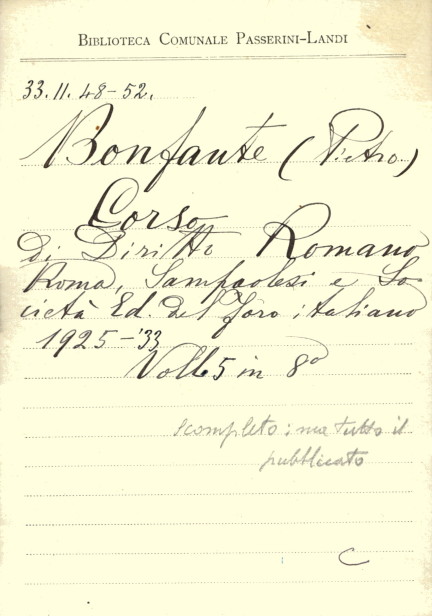 BIBLIOTECA COMUNALE PASSERINI-LANDI
33.11.48-52.
Bonfante (Pietro)
Corso
di Diritto Romano
Roma, Sampaolesi e So
cietà Ed. del Foro italiano
1925-'33
Voll 5 in 8º
scompleto: ma tutto il
pubblicato
C